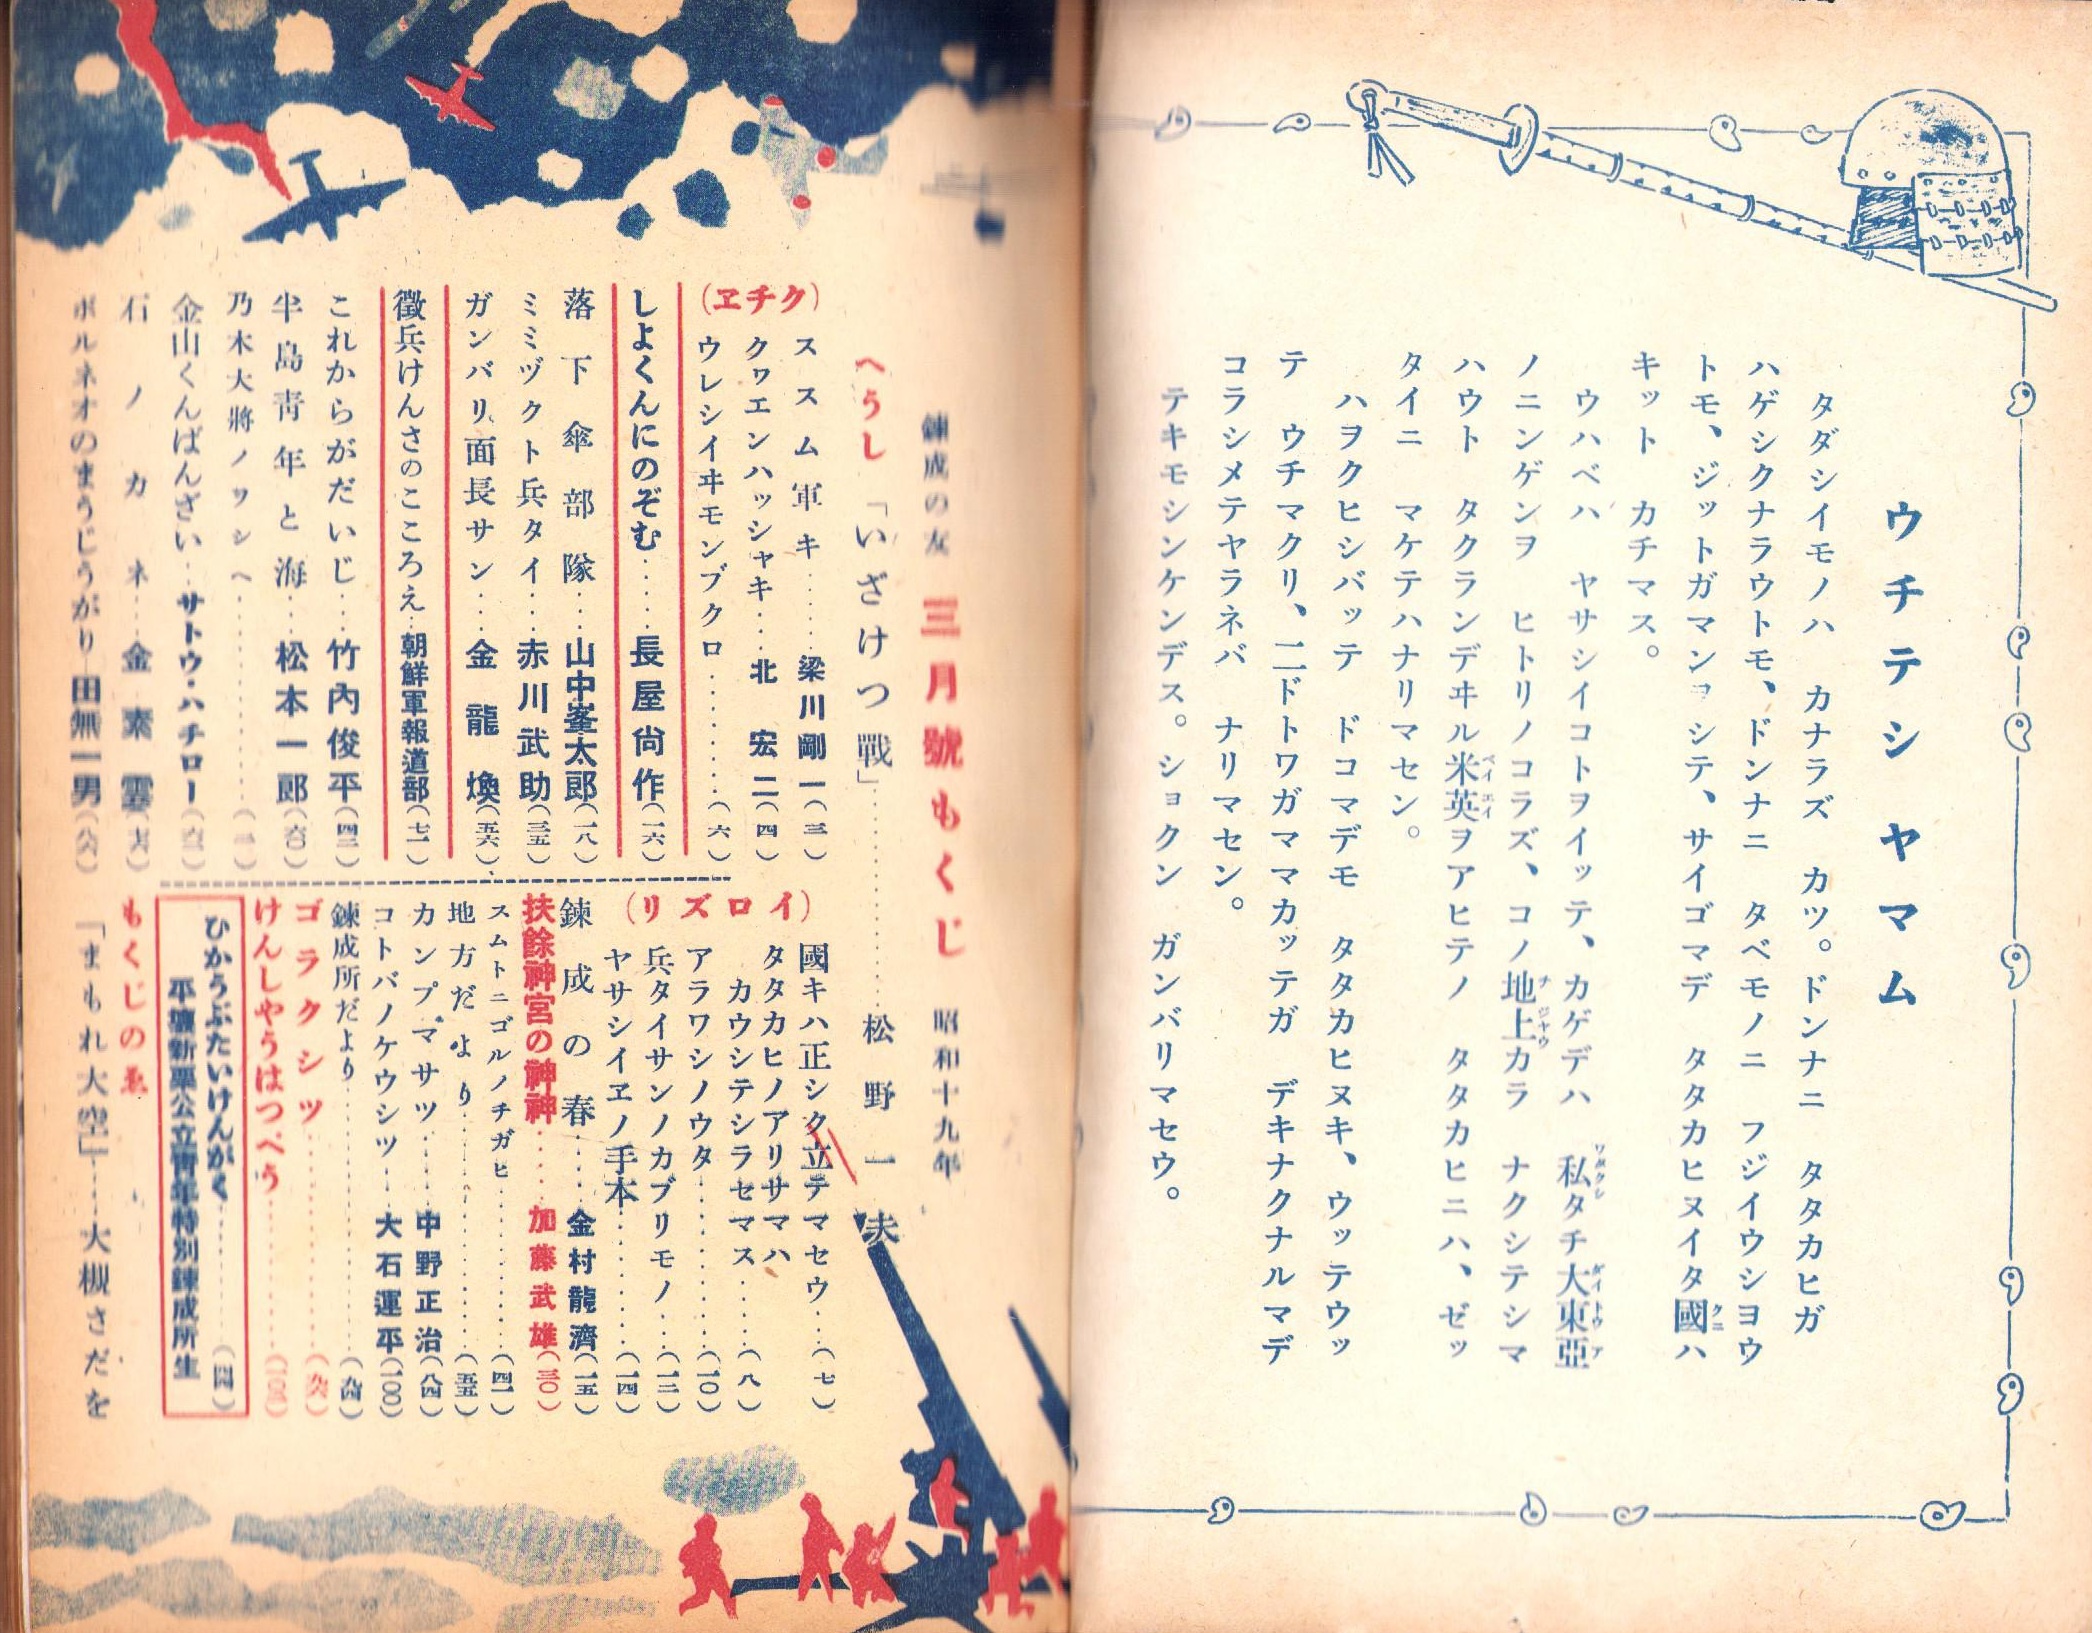 ウチテシヤマム
タダシイモノハ カナラズ カツ。ドンナニ タタカヒガ
ハゲシクナラウトモ、ドンナニ タベモノニ フジイウシヨウ
トモ、ジットガマンヨシテ、サイゴマデ タタカヒヌイタ國ハ
キット カチマス。
ウハベハ ヤサシイコトヲイッテ、カゲデハ 私タチ大東亞
ノニンゲンヲ ヒトリノコラズ、コノ地上カラ ナクシテシマ
ハウト タクランデヰル米英ヲアヒテノ タタカヒニハ、ゼッ
タイニ マケテハナリマセン。
ハヲクヒシバッテ ドコマデモ タタカヒヌキ、ウッテウッ
テ ウチマクリ、二ドトワガママカッテガ デキナクナルマデ
コラシメテヤラネバ ナリマセン。
テキモシンケンデス。ショクン ガンバリマセウ。
錬成の友 三月號もくじ 昭和十九年
へうし 「いざけつ戰」 松野一夫
(クチヱ)
ススム軍キ 梁川剛一(三)
クヮエンハッシャキ 北宏二(四)
ウレシイヰモンブクロ (六)
しよくんにのぞむ 長屋尚作(一六)
落下傘部隊 山中峯太郎(一八)
ミミヅクト兵タイ 赤川武助(三五)
ガンバリ面長サン 金龍煥(五六)
徵兵けんさのこころえ 朝鮮軍報道部(七一)
これからがだいじ 竹內俊平(四二)
半島靑年と海 松本一郎(六〇)
乃木大將ノワシヘ
金山くんばんざい サトウ・ハチロー
石ノカネ 金素雲
ボルネオのまうじうがり 田無一男
(イロズリ)
國キハ正シク立テマセウ (七)
タタカヒノアリサマハ
カウシテシラセマス (八)
アラワシノウタ (一〇)
兵タイサンノカブリモノ (一二)
ヤサシイヱノ手本 (一四)
錬成の春 金村龍濟(一五)
扶餘神宮の神神 加藤武雄(三〇)
スムトニゴルノチガヒ (四一)
地方だより (五五)
カンプマサツ 中野正治(八四)
コトバノケウシツ 大石運平(一〇〇)
錬成所だより
ゴラクシツ
けんしやうはつぺう
ひかうぶたいけんがく
平壤新栗公立靑年特別錬成所生
もくじのゑ
「まもれ大空」 大槻さだを